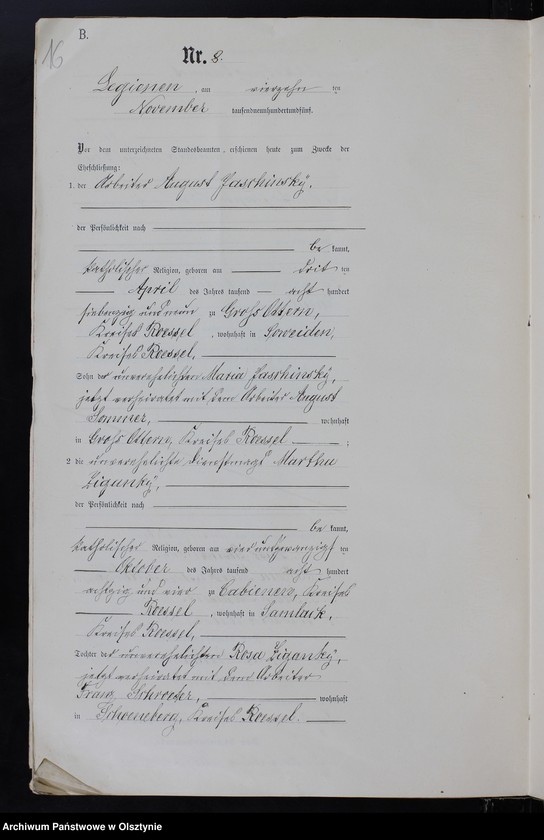 B.
16
Nr. 8.
Legienen, am vierzehn ten
November tausendneunhundertundfünf.
Vor dem unterzeichneten Standesbeamten erschienen heute zum Zwecke der
Eheschließung:
1. der Arbeiter August Jaschinsky,
der Persönlichkeit nach
be kannt,
katholischer Religion, geboren am drit ten
April des Jahres tausend acht hundert
siebenzig und neun zu Gross Ottern,
Kreises Roessel, wohnhaft in Soweiden,
Kreises Roessel,
Sohn der unverehelichten Maria Jaschinsky,
jetzt verheiratet mit dem Arbeiter August
Sommer, wohnhaft
in Gross Ottern, Kreises Roessel ;
2. die unverehelichte Dienstmagd Martha
Ziganky,
der Persönlichkeit nach
be kannt,
katholischer Religion, geboren am vierundzwanzigs ten
Oktober des Jahres tausend acht hundert
achtzig und vier zu Cabienen, Kreises
Roessel, wohnhaft in Samlack,
Kreises Roessel,
Tochter der unverehelichten Rosa Ziganky,
jetzt verheiratet mit dem Arbeiter
Franz Schroeter, wohnhaft
in Schoeneberg, Kreises Roessel.
Archiwum Państwowe w Olsztynie